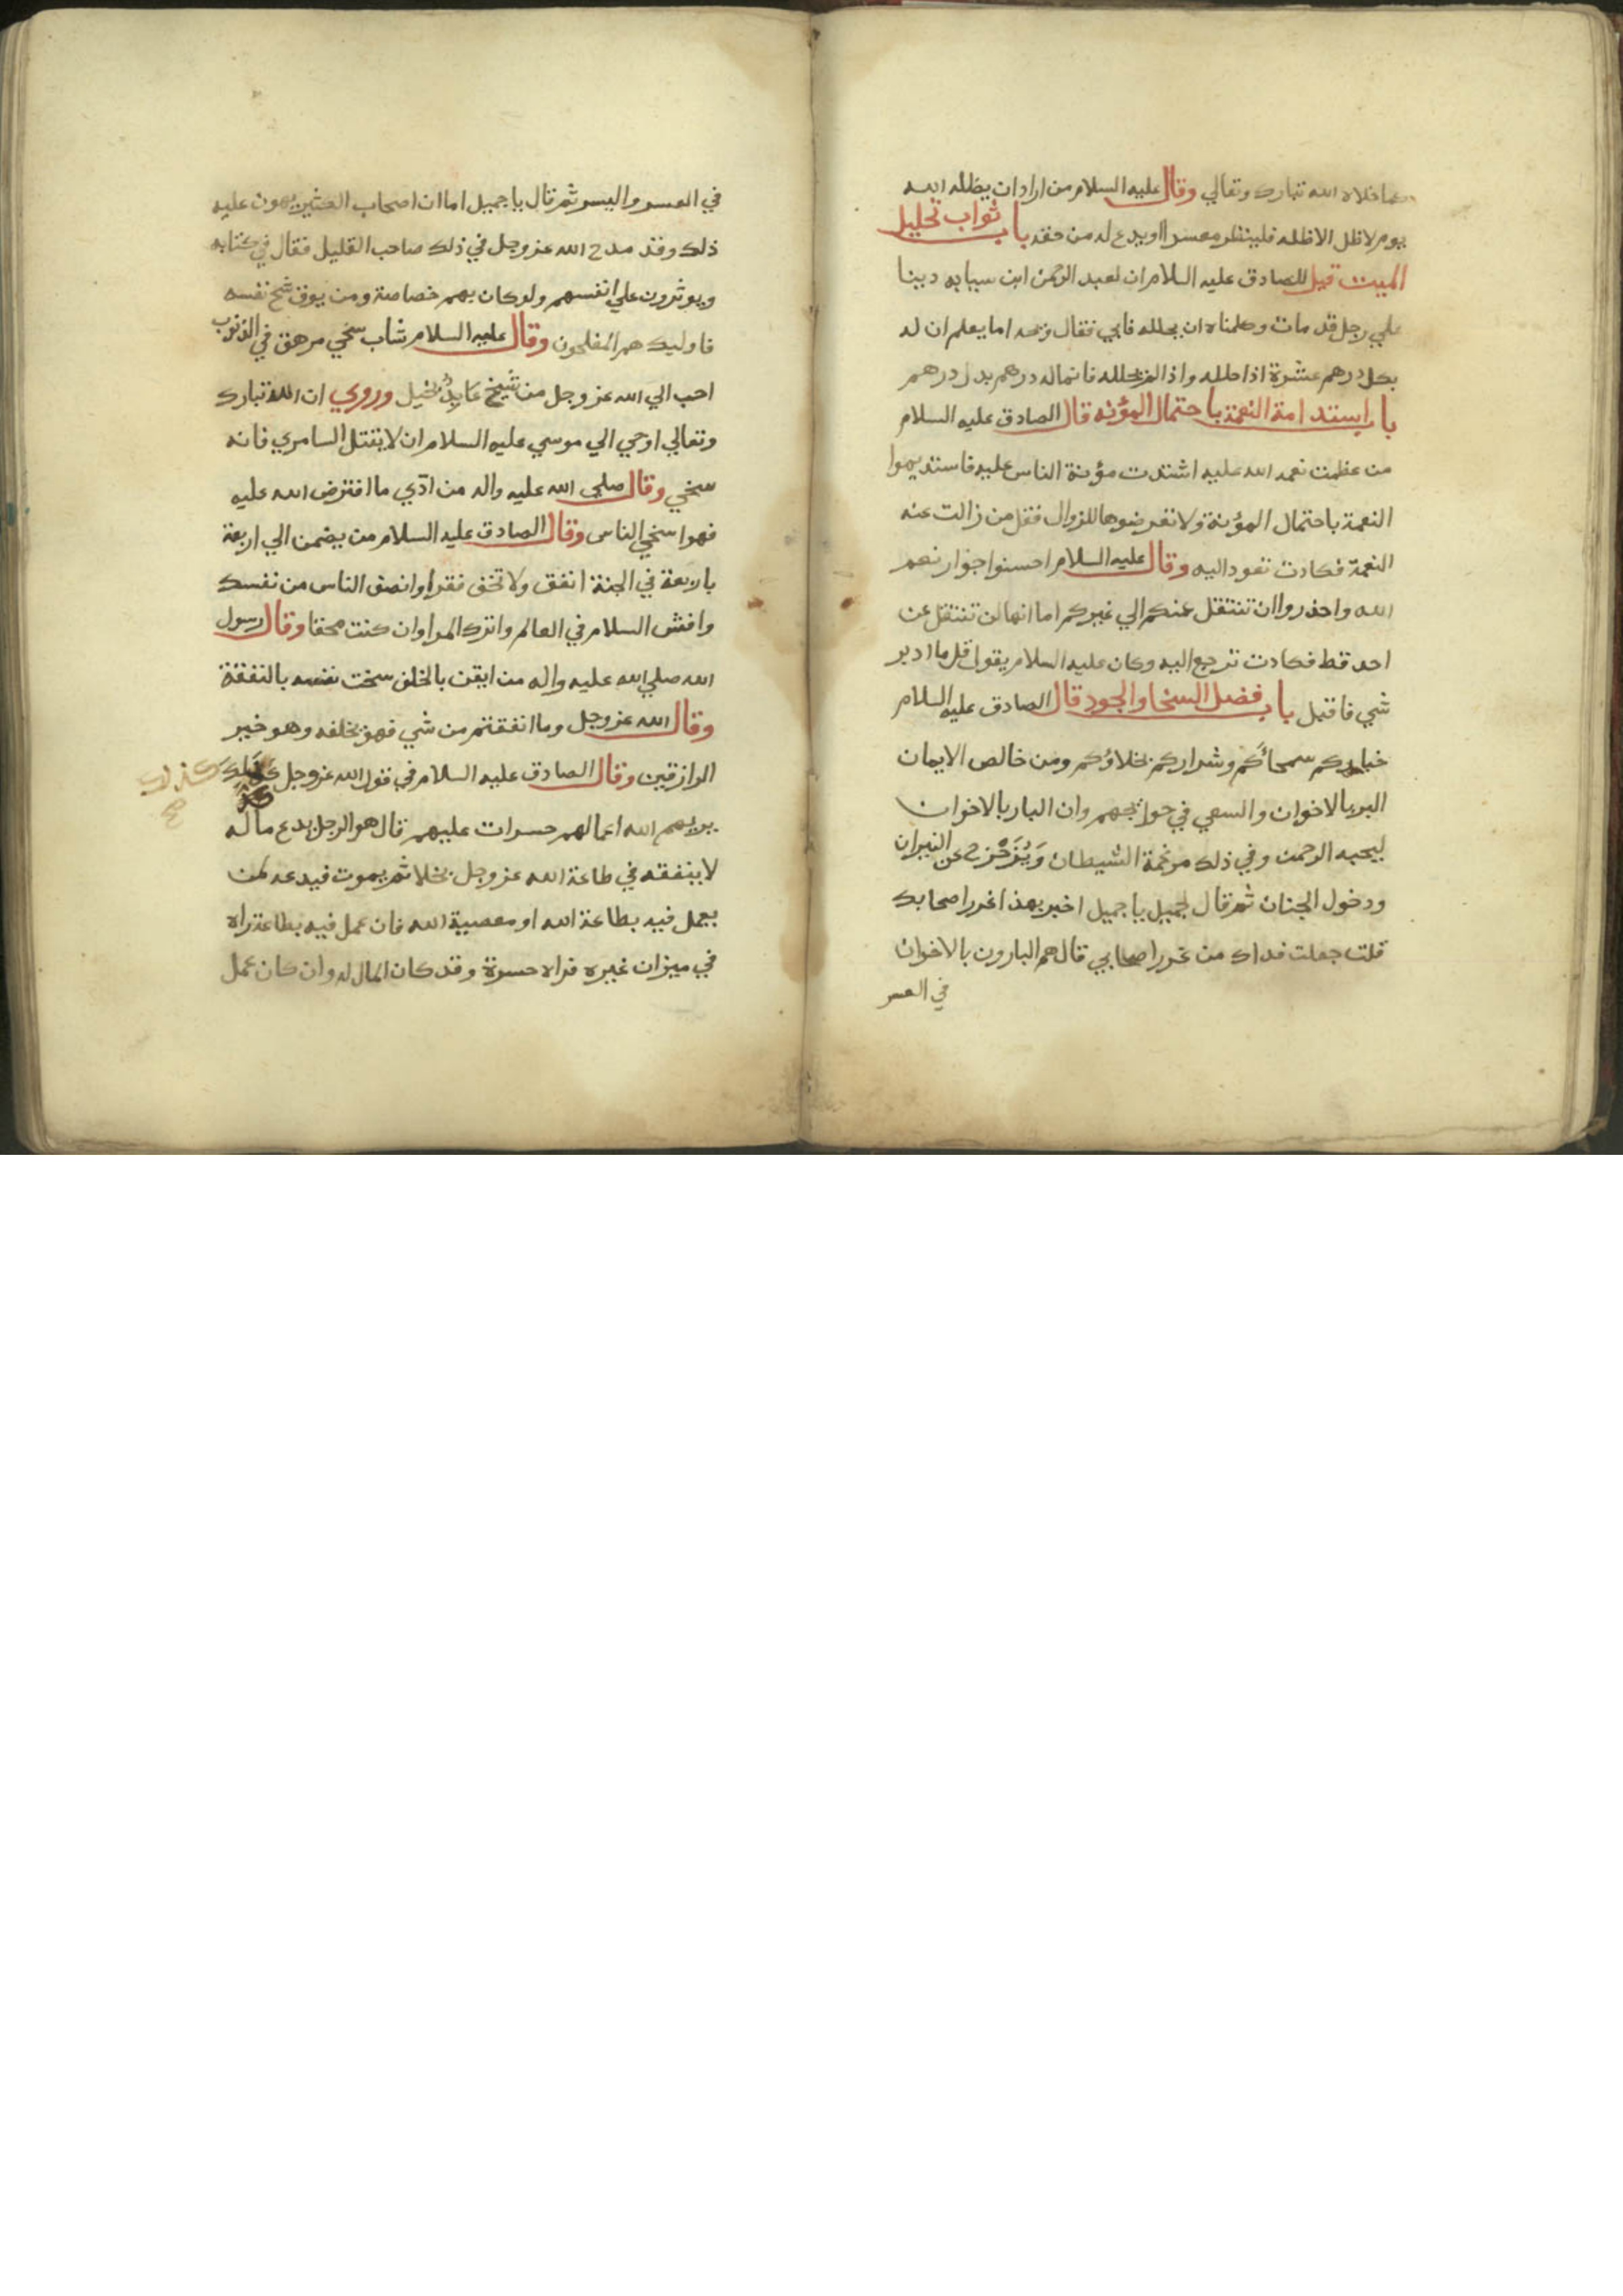 كما خلاه الله تبارك وتعالي وقال عليه السلام من اراد ان يظله الله
يوم لاظل الا ظله فلينظر معسرا او يدع له من حقه باب ثواب تحليل
الميت قيل للصادق عليه السلام ان لعبد الرحمن ابن سيابه دينا
علي رجل قد مات وكلمناه ان يحلله فابي فقال ويحه اما يعلم ان له
بكل درهم عشرة اذا حلله واذا لم يحلله فانماله درهم بدل درهم
باب استدامة النعمة باحتمال المؤنه قال الصادق عليه السلام
من عظمت نعمه الله عليه اشتدت مؤنة الناس عليه فاستديموا
النعمة باحتمال المؤنة ولا تعرضوها للزوال فقل من زالت عنه
النعمة فكادت تعود اليه وقال عليه السلام احسنوا جوار نعم
الله واحذروا ان تنتقل عنكم الي غيركم اما انها لن تنتقل عن
احد قط فكادت ترجع اليه وكان عليه السلام يقول قل ما ادبر
شي فاقبل باب فضل السخا والجود قال الصادق عليه السلام
خياركم سمحاؤكم وشراركم بخلاؤكم ومن خالص الايمان
البر بالاخوان والسعي في حوايجهم وان البار بالاخوان
ليحبه الرحمن وفي ذلك مرغمة الشيطان وَيُزَحْزح عن النيران
ودخول الجنان ثم قال لجميل يا جميل اخبر بهذا غرر اصحابك
قلت جعلت فداك من غرر اصحابي قال هم البارون بالاخوان
في العسر
في العسر واليسر ثم قال يا جميل اما ان اصحاب الكثير يهون عليه
ذلك وقد مدح الله عز وجل في ذلك صاحب القليل فقال في كتابه
ويوثرون علي انفسهم ولوكان بهم خصاصة ومن يوق شح نفسه
فاوليك هم المفلحون وقال عليه السلام شاب سخي مرهق في الذنوب
احب الي الله عز وجل من شيخ عابدٍ بخيل وروي ان الله تبارك
وتعالي اوحي الي موسي عليه السلام ان لا يقتل السامري فانه
سخي وقال صلي الله عليه واله من ادّي ما افترض الله عليه
فهوا سخي الناس وقال الصادق عليه السلام من يضمن الي اربعة
باربعة في الجنة انفق ولا تخف فقرا وانصف الناس من نفسك
وافش السلام في العالم واترك المرا وان كنت محقا وقال رسول
الله صلي الله عليه واله من ايقن بالخلف سخت نفسه بالنفقة
وقال الله عز وجل وما انفقتم من شي فهو يخلفه وهو خير
الرازقين وقال الصادق عليه السلام في قول الله عز وجل كذلك
كذلك
صح
يريهم الله اعمالهم حسرات عليهم قال هو الرجل يدع ماله
لا ينفقه في طاعة الله عز وجل بخلا ثم يموت فيدعه لمن
يعمل فيه بطاعة الله او معصية الله فان عمل فيه بطاعة راه
في ميزان غيره فراه حسرة وقد كان المال له وان كان عمل